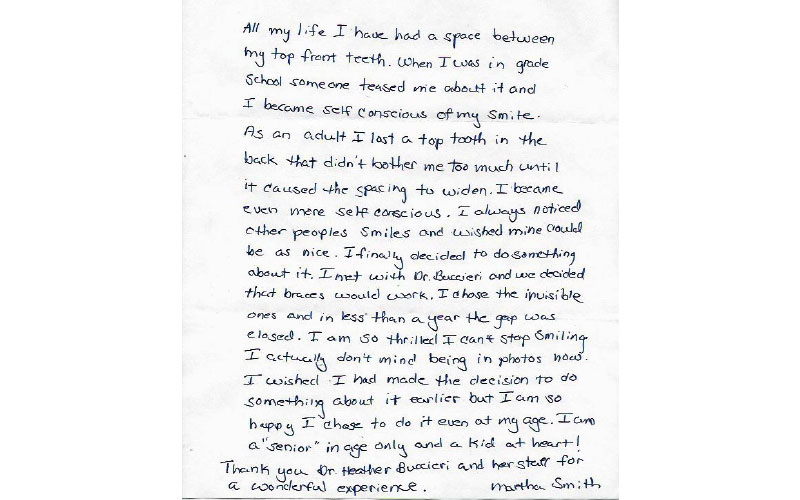 All my life I have had a space between
my top front teeth. When I was in grade
School someone teased me about it and
I became self conscious of my smile.
As an adult I lost a top tooth in the
back that didn't bother me too much until
it caused the spacing to widen. I became
even more self conscious. I always noticed
other peoples smiles and wished mine could
be as nice. I finally decided to do something
about it. I met with Dr. Buccieri and we decided
that braces would work. I chose the invisible
ones and in less than a year the gap was
closed. I am so thrilled I can't stop smiling
I actually don't mind being in photos now.
I wished I had made the decision to do
something about it earlier but I am so
happy I chose to do it even at my age. I am
a "senior" in age only and a kid at heart!
Thank you Dr. Heather Buccieri and her staff for
a wonderful experience. Martha Smith